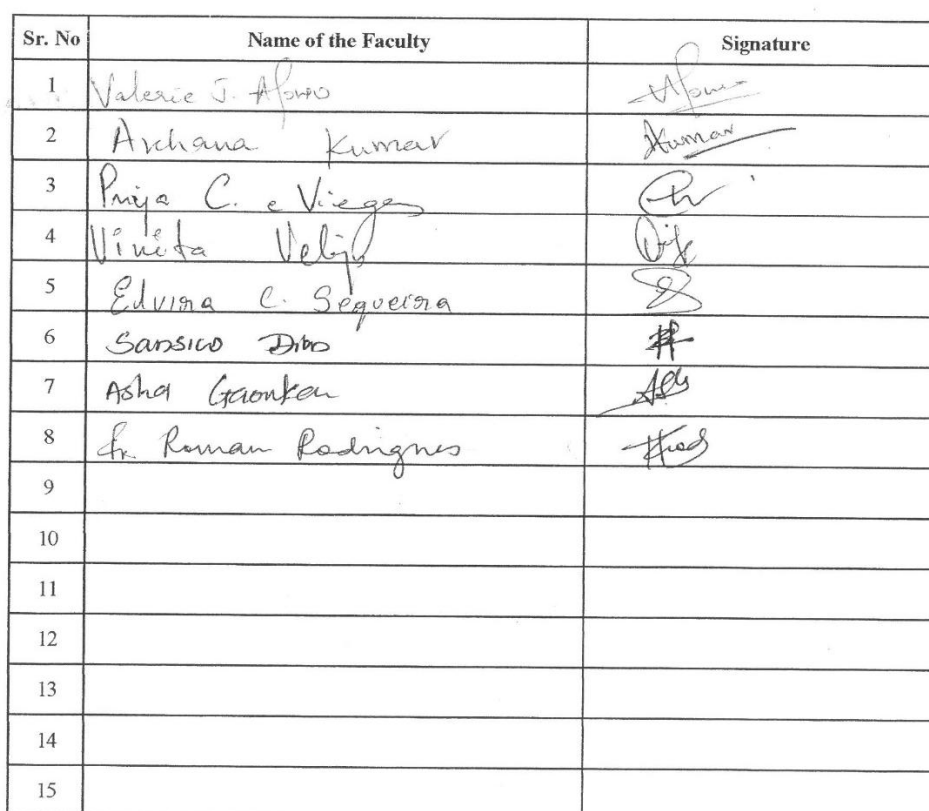 Sr. No Name of the Faculty Signature
1 Valerie J. Afonso Afonso
2 Archana Kumar Kumar
3 Priya C. e Viegas
4 Vinita Velip
5 Edvira C. Sequeira
6 Sansico Dias
7 Asha Gaonkar
8 Fr. Roman Rodrigues
9
10
11
12
13
14
15